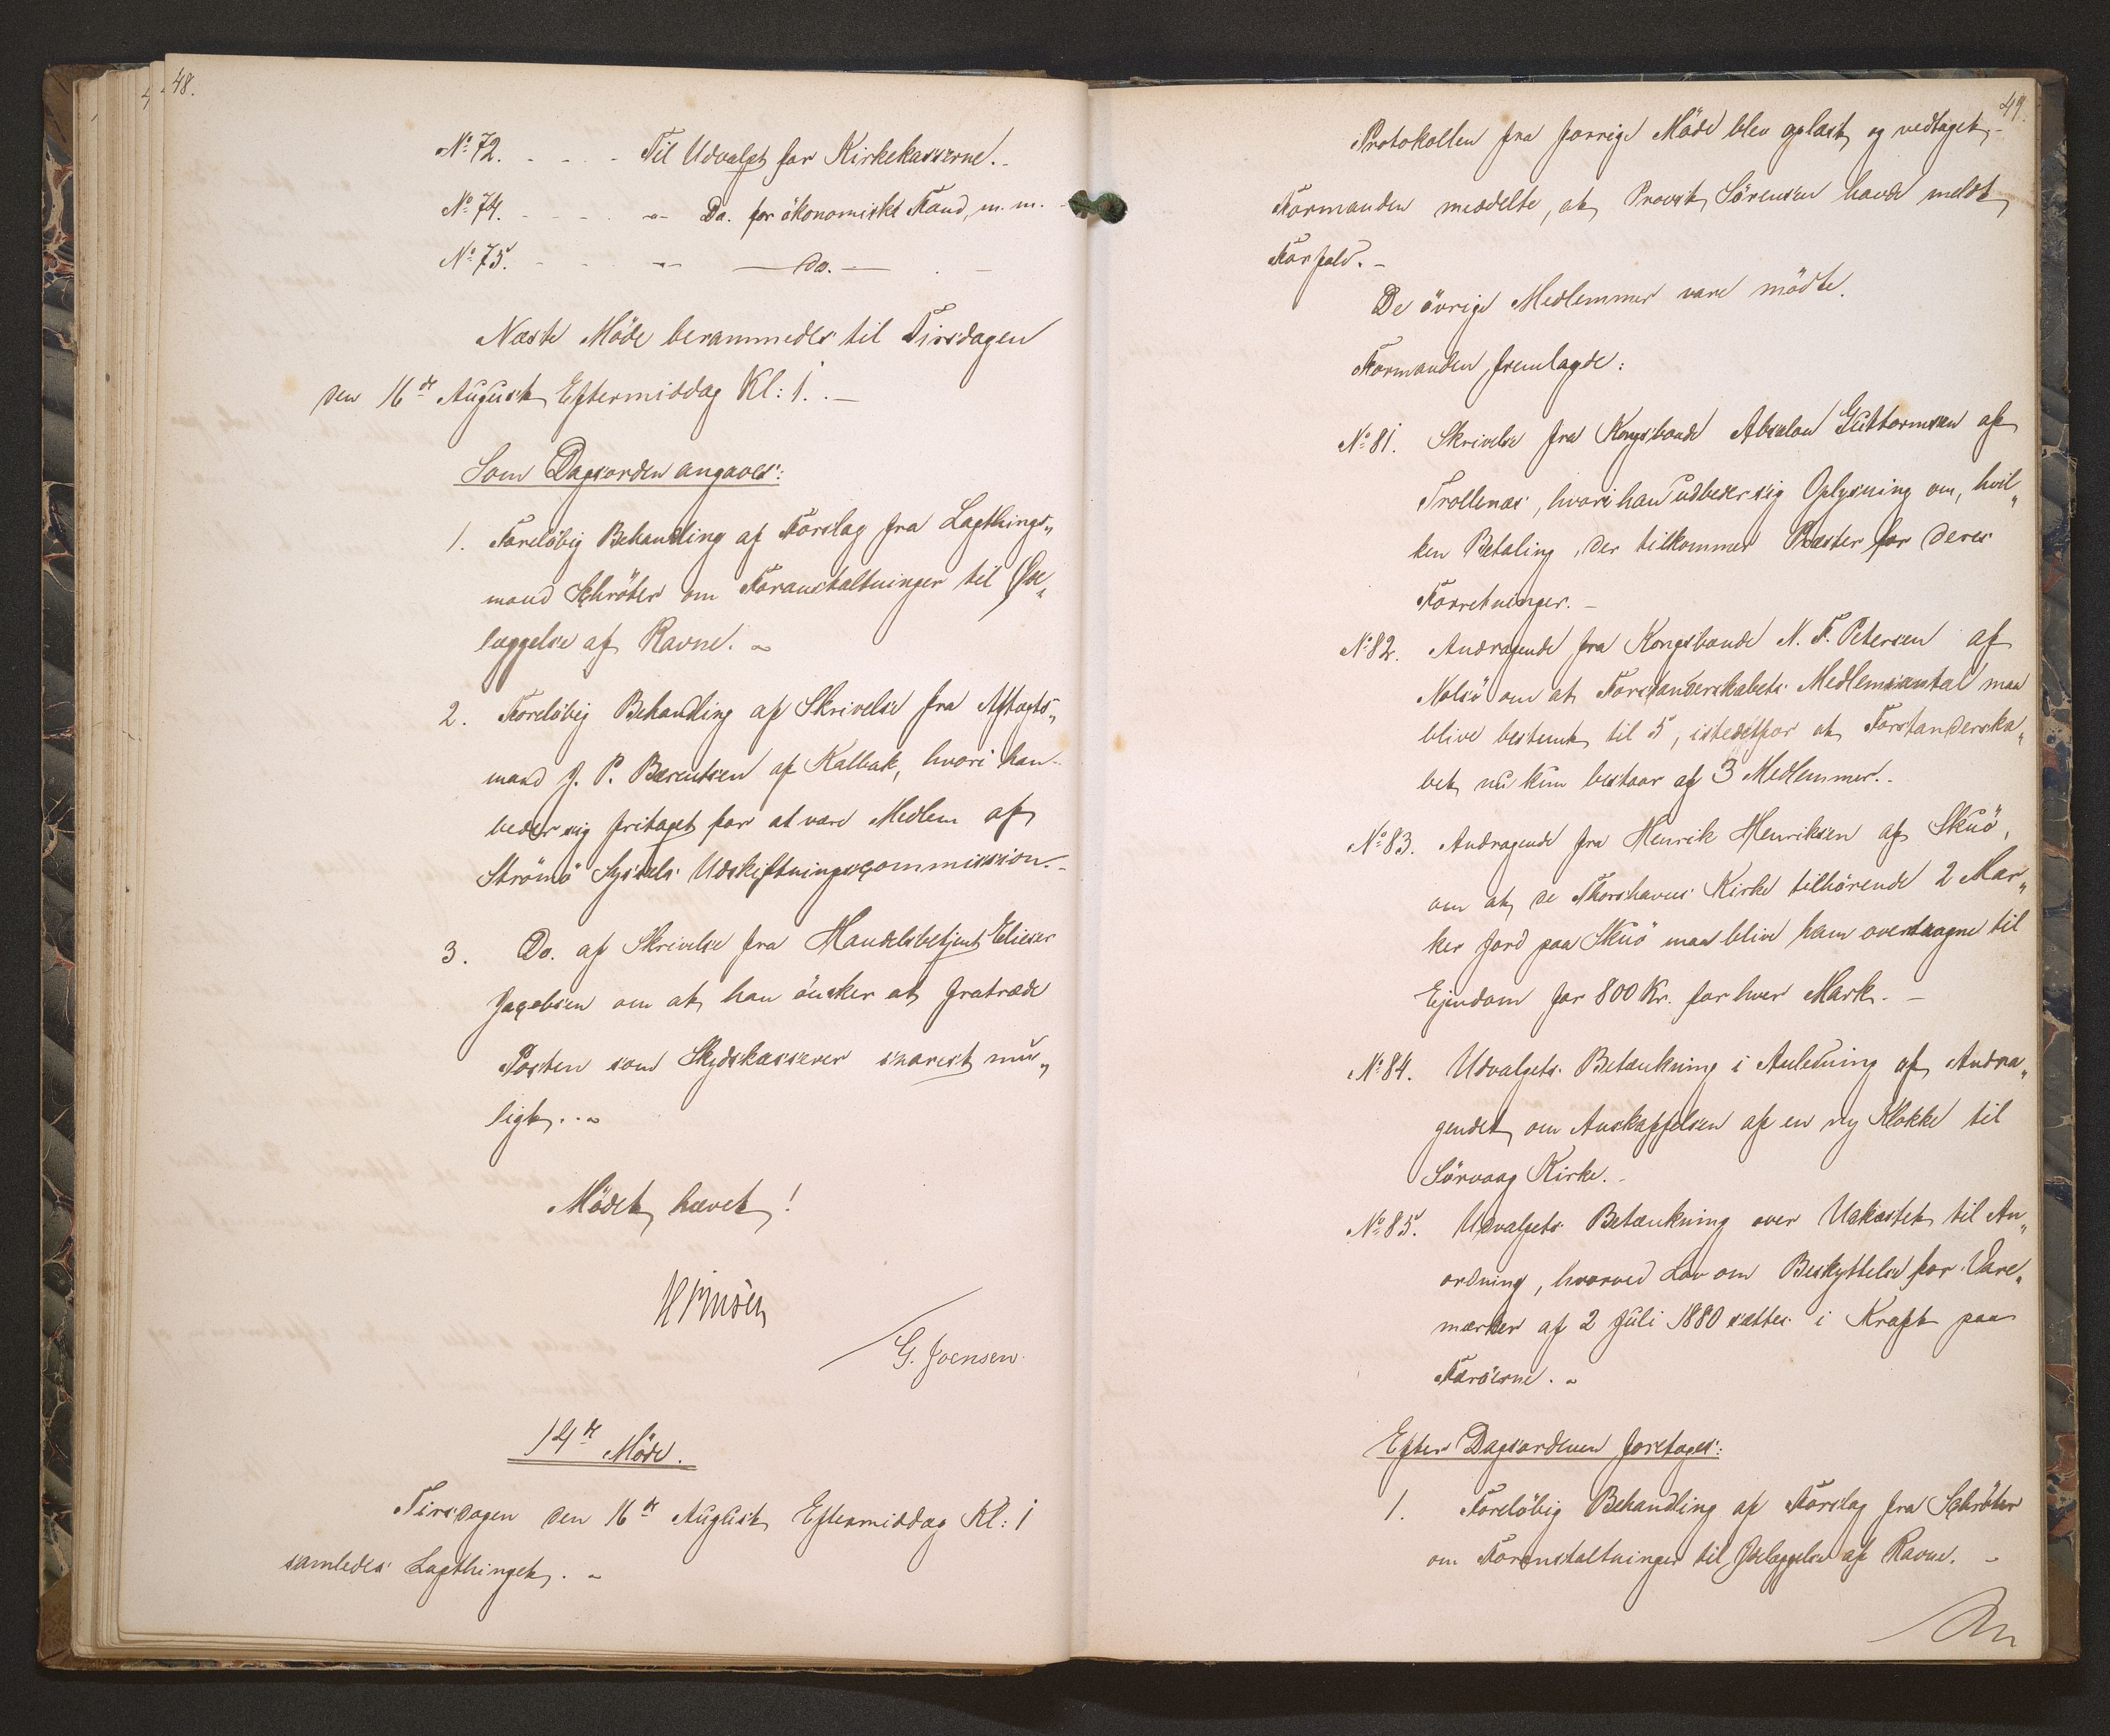 48.
No. 72. - - - Til Udvalget for Kirkekasserne. -
No. 74. - - - - „ - Do. for økonomiske Fond, m. m. -
No. 75. - - - „ - — Do. — - -
Næste Møde berammedes til Tirsdagen
den 16de August Eftermiddag Kl: 1. . —
Som Dagsorden angaves:
1. Foreløbig Behandling af Forslag fra Lagthings„
mand Schrøter om Foranstaltninger til Øde„
læggelse af Ravne. „
2. Foreløbig Behandling af Skrivelse fra Aftægts„
mand J. P. Barentsen af Kalbak, hvori han
beder sig fritaget for at være Medlem af
Strømø Syssels Udskiftningscommission. -
3. Do. af Skrivelse fra Handelsbetjent Elieser
Jacobsen om at han ønsker at fratræde
Posten som Skydskasserer snarest mu„
ligt. . „
Mødet hævet!
G. Joensen
14de Møde.
Tirsdagen den 16de August Eftermiddag Kl: 1
samledes Lagthinget. „
49.
Protokollen fra forrige Møde blev oplæst og vedtaget. -
Formanden meddelte, at Provst Sørensen havde meldt
Forfald. -
De øvrige Medlemmer vare mødte.
Formanden fremlagde:
No. 81. Skrivelse fra Kongsbonde Absalon Guttormsen af
Trollenæs, hvori han udbeder sig Oplysning om, hvil„
ken Betaling, der tilkommer Præster for deres
Forretninger. -
No. 82. Andragende fra Kongsbonde N. F. Petersen af
Nolsø om at Forstanderskabets Medlemsantal maa
blive bestemt til 5, istedetfor at Forstanderska„
bet nu kun bestaar af 3 Medlemmer. -
No. 83. Andragende fra Henrik Henriksen af Skuø,
om at de Thorshavns Kirke tilhørende 2 Mar„
ker Jord paa Skuø maa blive ham overdragne til
Ejendom for 800 Kr. for hver Mark. -
No. 84. Udvalgets Betænkning i Anledning af Andra„
gendet om Anskaffelsen af en ny Klokke til
Sørvaag Kirke. -
No. 85. Udvalgets Betænkning over Udkastet til An„
ordning, hvorved Lov om Beskyttelse for Vare„
mærker af 2 Juli 1880 sættes i Kraft paa
Færøerne. „
Efter Dagsordenen foretoges:
1. Foreløbig Behandling af Forslag fra Schrøter
om Foranstaltninger til Ødelæggelse af Ravne. -